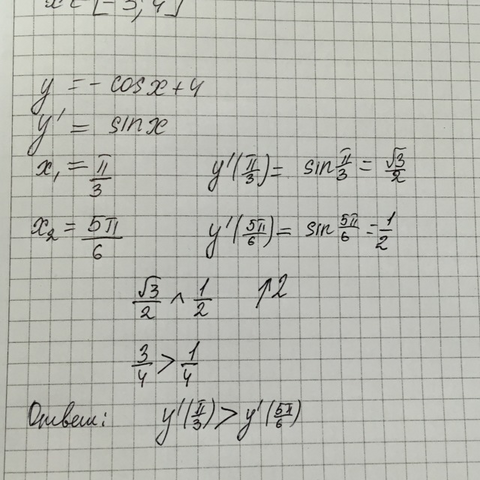 x ∈ [-3; 4]
y = - cosx + 4
y' = sinx
x₁ = π/3 y'(π/3) = sin π/3 = √3/2
x₂ = 5π/6 y'(5π/6) = sin 5π/6 = 1/2
√3/2 ^ 1/2 ↑2
3/4 > 1/4
Ответ: y'(π/3) > y'(5π/6)